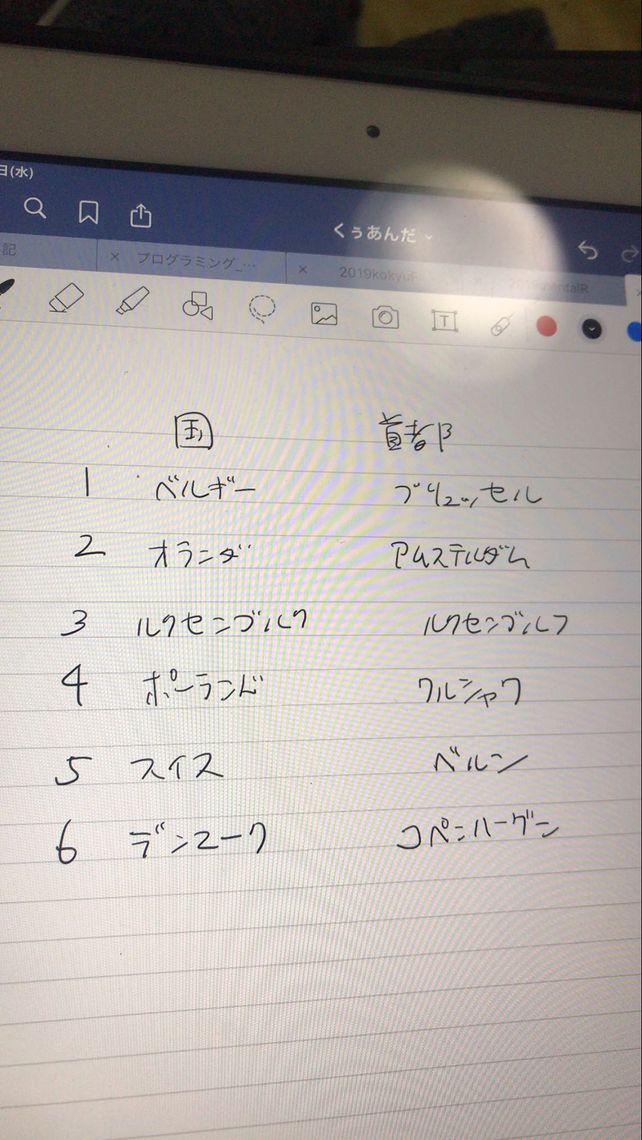 日(水)
くぅあんだ
記 × プログラミング_… × 2019kokyu
T
国 首都
1 ベルギー ブリュッセル
2 オランダ アムステルダム
3 ルクセンブルク ルクセンブルク
4 ポーランド ワルシャワ
5 スイス ベルン
6 デンマーク コペンハーゲン